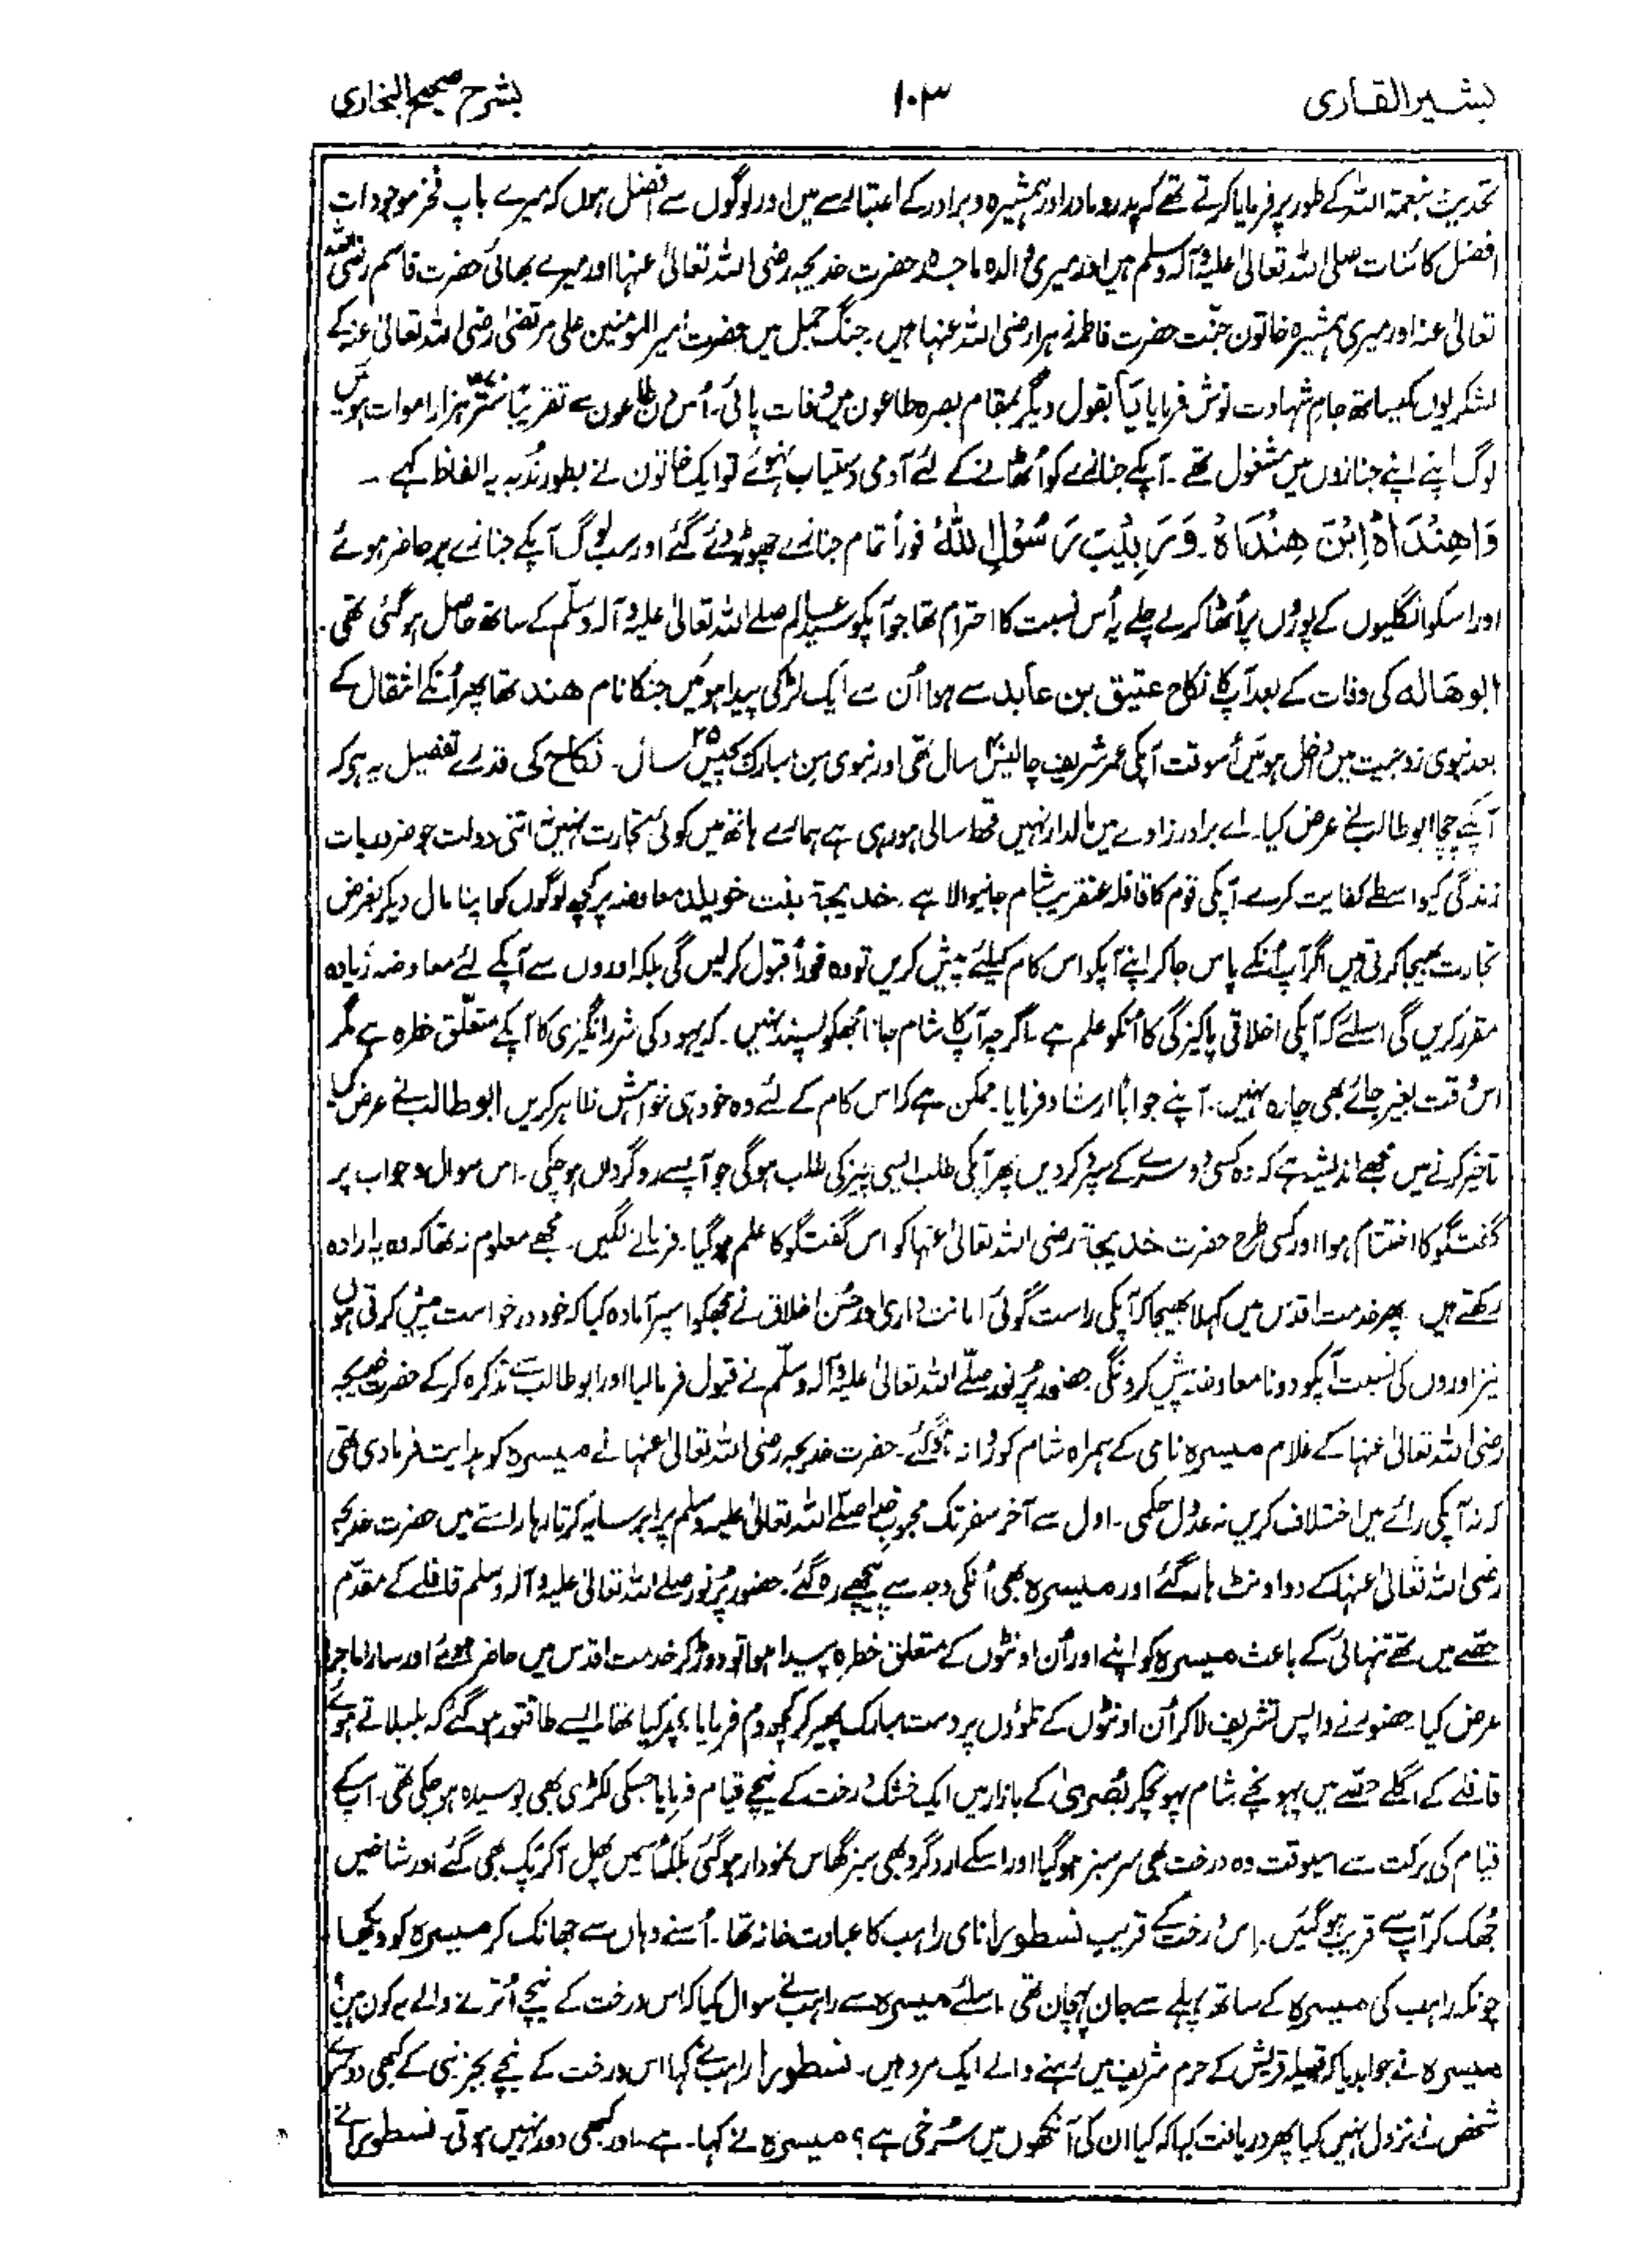 بشیر القاری ۱۰۳ بشرح صحیح البخاری
تحدیث بنعمۃ اللہ کے طور پر فرمایا کرتے تھے کہ پدر و مادر اور ہمشیرہ و برادر کے اعتبار سے میں اور لوگوں سے افضل ہوں کہ میرے باپ فخر موجودات
افضل کائنات صلی اللہ تعالیٰ علیہ وآلہ وسلم ہیں اور میری والدہ ماجدہ حضرت خدیجہ رضی اللہ تعالیٰ عنہا اور میرے بھائی حضرت قاسم رضی اللہ
تعالیٰ عنہ اور میری ہمشیرہ خاتون جنّت حضرت فاطمہ زہرا رضی اللہ عنہا ہیں۔ جنگ جمل میں حضرت امیر المومنین علی مرتضیٰ رضی اللہ تعالیٰ عنہ کے
لشکریوں کیساتھ جام شہادت نوش فرمایا یا بقول دیگر بمقام بصرہ طاعون میں وفات پائی۔ اُس دن طاعون سے تقریبًا ستّر ہزار اموات ہوئیں
لوگ اپنے اپنے جنازوں میں مشغول تھے۔ آپکے جنازے کو اُٹھانے کے لئے آدمی دستیاب نہوئے تو ایک خاتون نے بطور نُدبہ یہ الفاظ کہے ۔
وَاهِنْدَاهُ اِبْنَ هِنْدَاهُ۔ وَرَبِيْبَ رَسُوْلِ اللّٰهِ فوراً تمام جنازے چھوڑ دئے گئے اور سب لوگ آپکے جنازے پر حاضر ہوئے
اور اسکو انگلیوں کے پوروں پر اُٹھا کر لے چلے یہ اُس نسبت کا احترام تھا جو آپکو سید عالم صلے اللہ تعالیٰ علیہ وآلہ وسلّم کے ساتھ حاصل ہو گئی تھی۔
ابو ھالہ کی وفات کے بعد آپ کا نکاح عتیق بن عابد سے ہوا اُن سے ایک لڑکی پیدا ہوئیں جنکا نام ھند تھا پھر اُنکے انتقال کے
بعد نبوی زوجیت میں داخل ہوئیں اُسوقت آپکی عمر شریف چالیس سال تھی اور نبوی سِن مبارک پچیس ۲۵ سال۔ نکاح کی قدرے تفصیل یہ ہیکہ
آپکے چچا ابو طالب نے عرض کیا۔ اے برادر زادے میں مالدار نہیں قحط سالی ہو رہی ہے ہمارے ہاتھ میں کوئی تجارت نہیں نہ اتنی دولت جو ضروریات
زندگی کیواسطے کفایت کرے۔ آپکی قوم کا قافلہ عنقریب شام جانیوالا ہے۔ خدیجۃ بنت خویلد معاوضہ پر کچھ لوگوں کو اپنا مال دیکر بغرض
تجارت بھیجا کرتی ہیں اگر آپ اُنکے پاس جا کر اپنے آپکو اس کام کیلئے پیش کریں تو وہ فوراً قبول کر لیں گی بلکہ اوروں سے آپکے لئے معاوضہ زیادہ
مقرر کریں گی اسلئے کہ آپکی اخلاقی پاکیزگی کا اُنکو علم ہے۔ اگرچہ آپ کا شام جانا مجھکو پسند نہیں۔ کہ یہود کی شر انگیزی کا آپکے متعلّق خطرہ ہے مگر
اسوقت بغیر جائے بھی چارہ نہیں۔ آپنے جواباً ارشاد فرمایا۔ ممکن ہے کہ اس کام کے لئے وہ خود ہی خواہش ظاہر کریں ابو طالب نے عرض کیا
تاخیر کرنے میں مجھے اندیشہ ہے کہ وہ کسی دوسرے کے سپرد کر دیں پھر آپکی طلب ایسی چیز کی طلب ہوگی جو آپسے روگرداں ہو چکی۔ اس سوال و جواب پر
گفتگو کا اختتام ہوا اور کسی طرح حضرت خدیجۃ رضی اللہ تعالیٰ عنہا کو اس گفتگو کا علم ہو گیا۔ فرمانے لگیں۔ مجھے معلوم نہ تھا کہ وہ یہ ارادہ
رکھتے ہیں۔ پھر خدمت اقدس میں کہلا بھیجا کہ آپکی راست گوئی امانت داری اور حُسن اخلاق نے مجھکو اسپر آمادہ کیا کہ خود درخواست پیش کرتی ہوں
نیز اوروں کی نسبت آپکو دونا معاوضہ پیش کرونگی۔ حضور پُر نور صلّے اللہ تعالیٰ علیہ وآلہ وسلّم نے قبول فرما لیا اور ابو طالب سے تذکرہ کرکے حضرت خدیجہ
رضی اللہ تعالیٰ عنہا کے غلام میسرہ نامی کے ہمراہ شام کو روانہ ہوگئے۔ حضرت خدیجہ رضی اللہ تعالیٰ عنہا نے میسرہ کو ہدایت فرما دی تھی
کہ نہ آپکی رائے میں اختلاف کریں نہ عدول حکمی۔ اول سے آخر سفر تک محبوب خدا صلّے اللہ تعالیٰ علیہ وسلم پر ابر سایہ کرتا رہا راستے میں حضرت خدیجہ
رضی اللہ تعالیٰ عنہا کے دو اونٹ ہار گئے اور میسرہ بھی اُنکی وجہ سے پیچھے رہ گئے۔ حضور پُر نور صلے اللہ تعالیٰ علیہ وآلہ وسلم قافلے کے مقدّم
حصّے میں تھے تنہائی کے باعث میسرہ کو اپنے اور اُن اونٹوں کے متعلق خطرہ پیدا ہوا تو دوڑ کر خدمت اقدس میں حاضر ہوئے اور سارا ماجرا
عرض کیا۔ حضور نے واپس تشریف لا کر اُن اونٹوں کے تلوؤں پر دست مبارک پھیر کر کچھ دم فرمایا پھر کیا تھا ایسے طاقتور ہو گئے کہ بلبلاتے ہوئے
قافلے کے اگلے حصّے میں پہونچے شام پہونچکر بُصریٰ کے بازار میں ایک خشک درخت کے نیچے قیام فرمایا جسکی لکڑی بھی بوسیدہ ہو چکی تھی۔ آپ کے
قیام کی برکت سے اسیوقت وہ درخت بھی سر سبز ہو گیا اور اسکے ارد گرد بھی سبز گھاس نمودار ہو گئی بلکہ اُسمیں پھل آکر پک بھی گئے اور شاخیں
جُھک کر آپ سے قریب ہو گئیں۔ اِس درخت کے قریب نسطورا نامی راہب کا عبادت خانہ تھا۔ اُسنے وہاں سے جھانک کر میسرہ کو دیکھا
چونکہ راہب کی میسرہ کے ساتھ پہلے سے جان پہچان تھی۔ اسلئے میسرہ سے راہب نے سوال کیا کہ اس درخت کے نیچے اُترنے والے یہ کون ہیں؟
میسرہ نے جواب دیا کہ قبیلہ قریش کے حرم شریف میں رہنے والے ایک مرد ہیں۔ نسطورا راہب نے کہا اس درخت کے نیچے بجز نبی کے کبھی دوسرے
شخص نے نزول نہیں کیا پھر دریافت کیا کہ کیا ان کی آنکھوں میں سُرخی ہے؟ میسرہ نے کہا۔ ہے۔ اور کبھی دور نہیں ہوتی۔ نسطورا نے